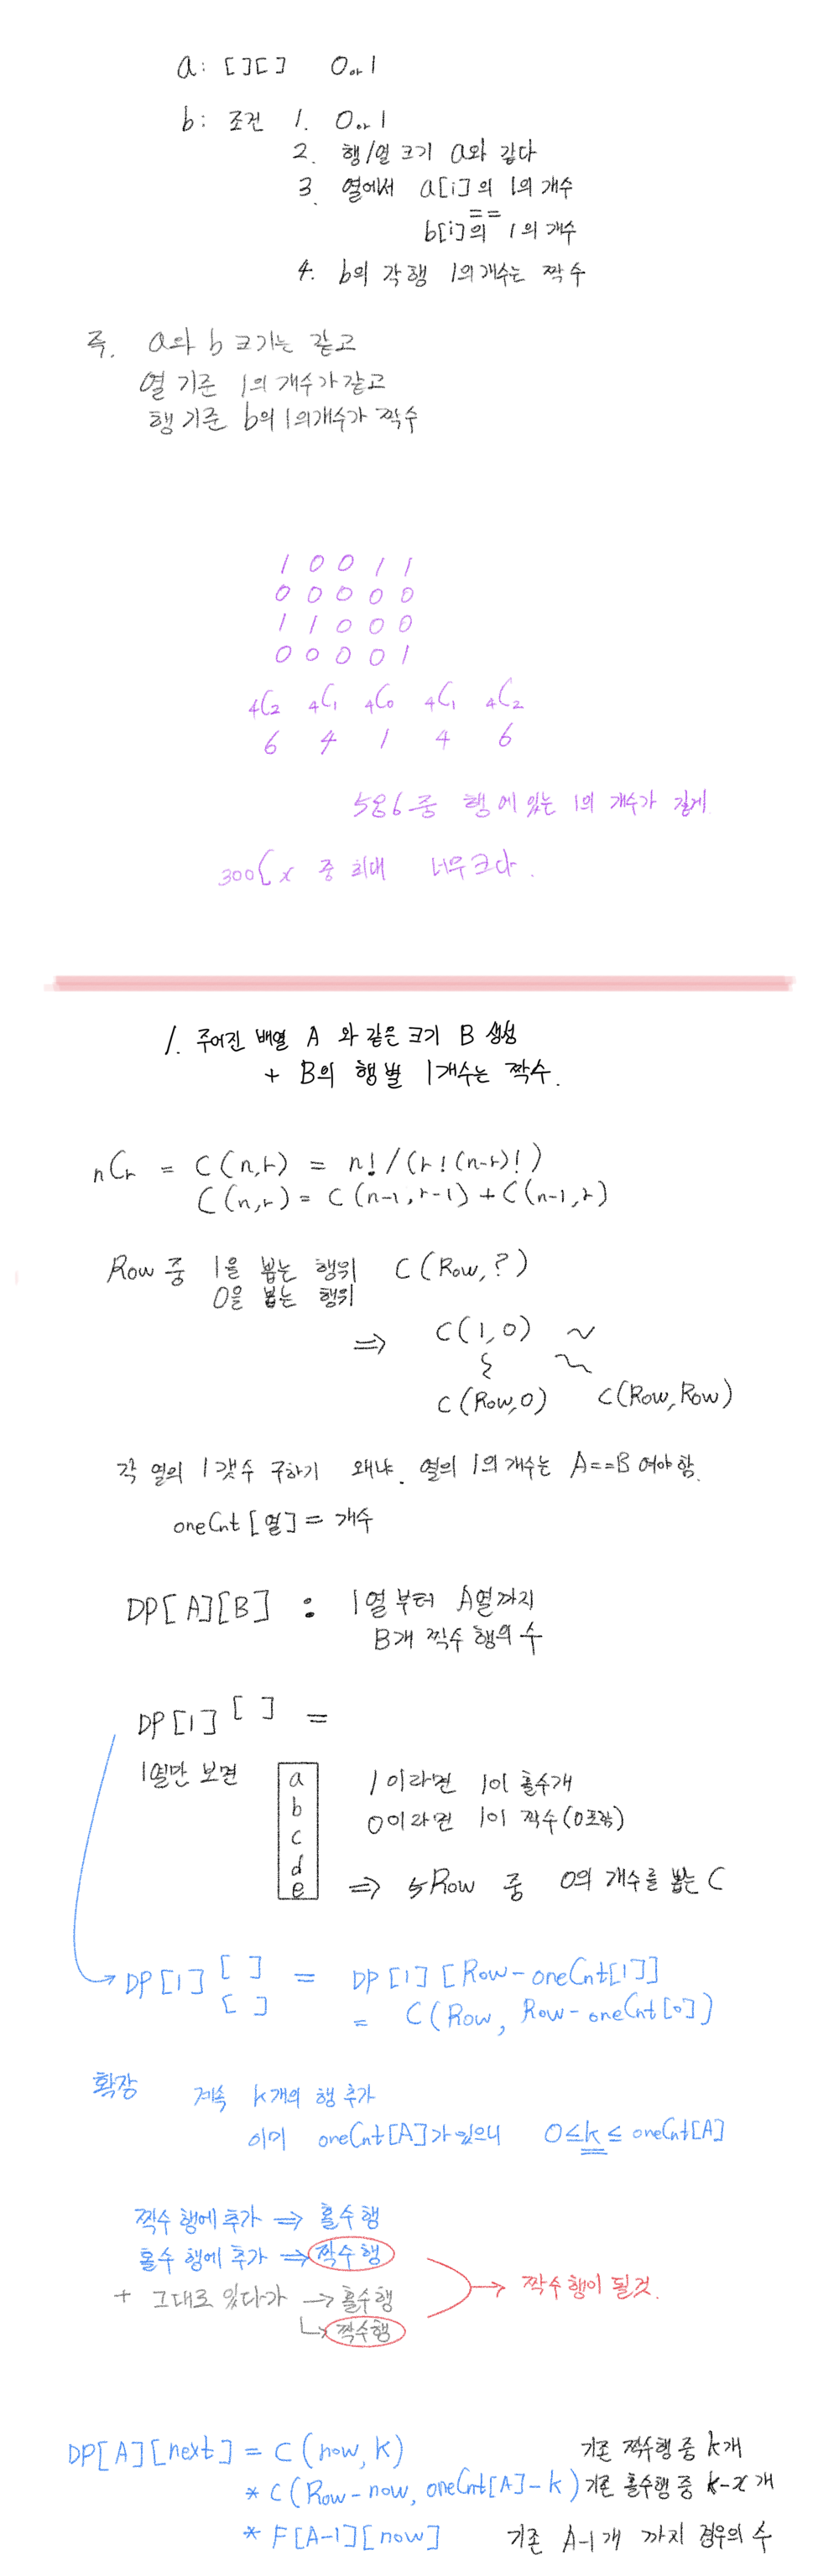 a: [][] 0 or 1
b: 조건 1. 0 or 1
2. 행/열 크기 a와 같다
3. 열에서 a[i]의 1의 개수
==
b[i]의 1의 개수
4. b의 각 행 1의 개수는 짝수
즉. a와 b 크기는 같고
열 기준 1의 개수가 같고
행 기준 b의 1의 개수가 짝수
1 0 0 1 1
0 0 0 0 0
1 1 0 0 0
0 0 0 0 1
4C2 4C1 4C0 4C1 4C2
6 4 1 4 6
중 행에 있는 1의 개수가
300Cx 중 최대 너무 크다.
1. 주어진 배열 A 와 같은 크기 B 생성
+ B의 행 별 1개수는 짝수.
nCr = C(n,r) = n! / (r!(n-r)!)
C(n,r) = C(n-1,r-1) + C(n-1,r)
Row 중 1을 뽑는 행위 C(Row,?)
0을 뽑는 행위
⇒ C(1,0) ~
~ ~
C(Row,0) C(Row,Row)
각 열의 1 갯수 구하기 왜냐. 열의 1의 개수는 A==B 여야 함.
oneCnt[열] = 개수
DP[A][B] : 1열부터 A열까지
B개 짝수 행의 수
DP[1][ ] =
1열만 보면
a
b
c
d
e
1이라면 1이 홀수개
0이라면 1이 짝수(0포함)
⇒ 5Row 중 0의 개수를 뽑는 C
DP[1][ ] = DP[1][Row-oneCnt[1]]
[ ] = C(Row, Row-oneCnt[0])
확장 계속 k개의 행 추가
이미 oneCnt[A]가 있으니 0≤k≤oneCnt[A]
짝수 행에 추가 ⇒ 홀수 행
홀수 행에 추가 ⇒ 짝수 행
+ 그대로 있다가 → 홀수행
↳ 짝수행
→ 짝수 행이 될것.
DP[A][next] = C(now, k) 기존 짝수행 중 k개
* C(Row-now, oneCnt[A]-k) 기존 홀수행 중 k-x개
* F[A-1][now] 기존 A-1개 까지 경우의 수